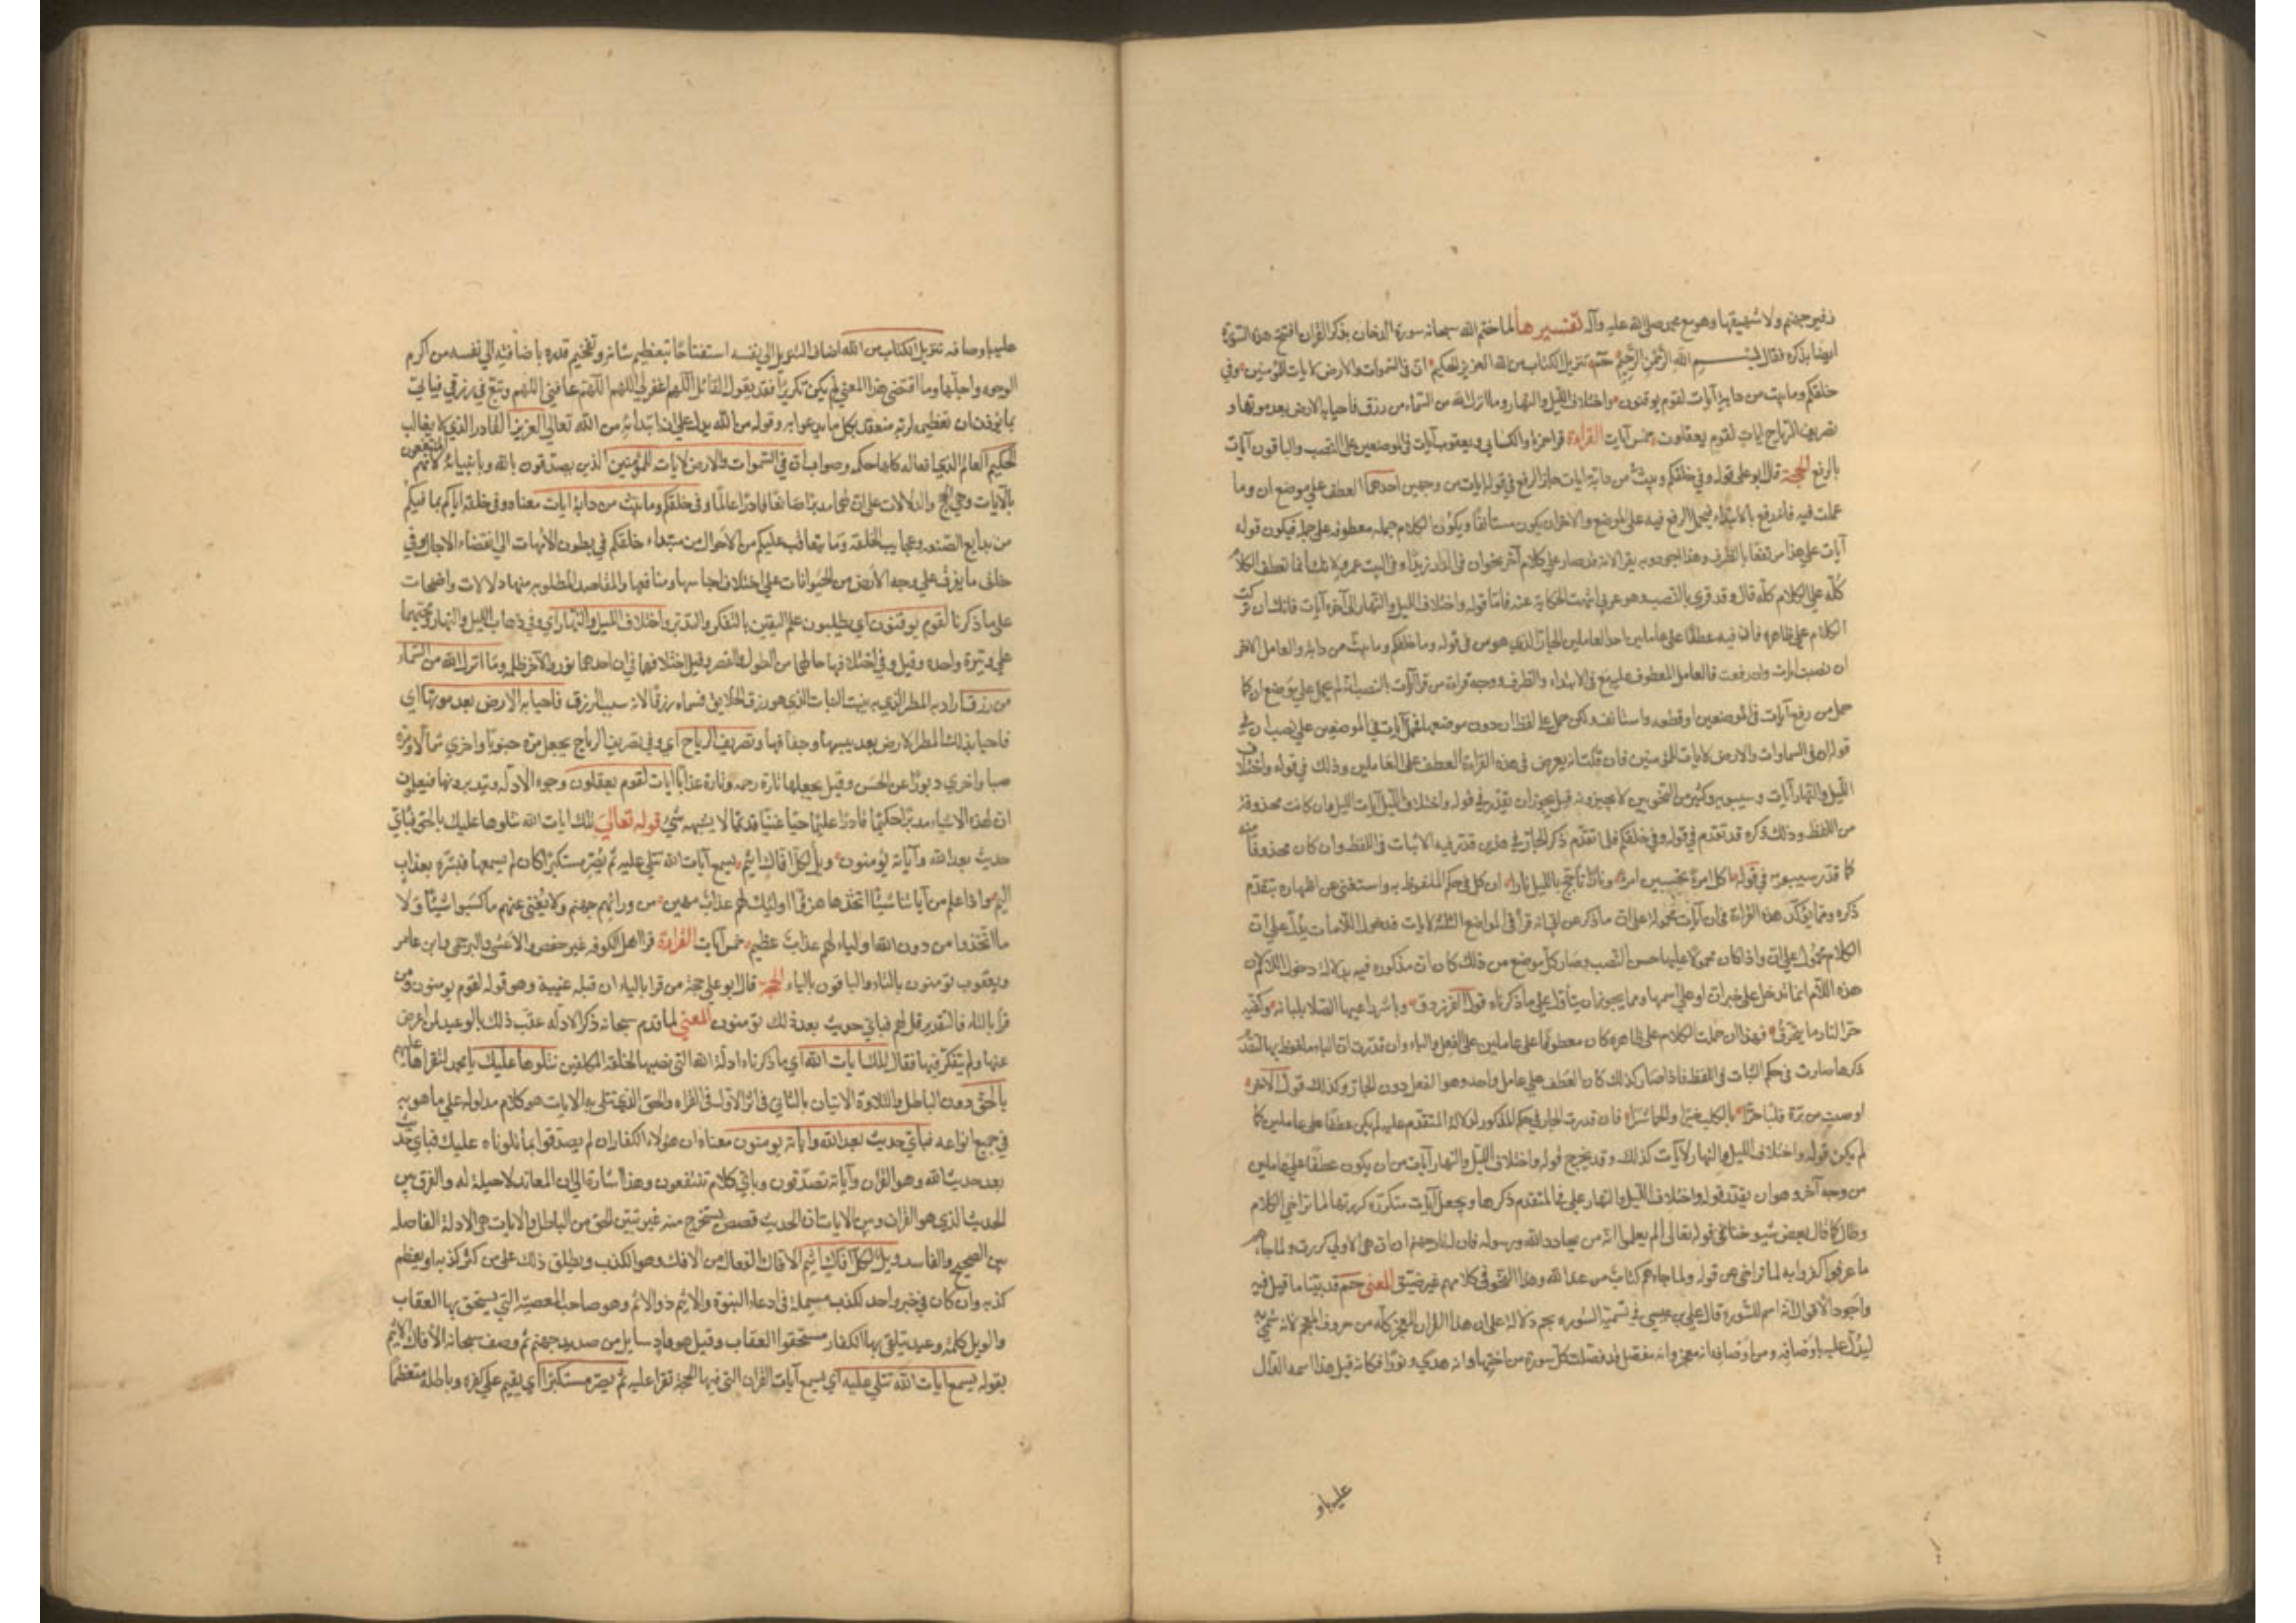 زفير جهنم ولا شهيقها وهو مع محمد صلى الله عليه وآله تفسيرها لما ختم الله سبحانه سورة الدخان بذكر القران افتتح هذه السورة
ايضا بذكره فقال بسم الله الرحمن الرحيم حم تنزيل الكتاب من الله العزيز الحكيم ان في السموات والارض لايات للمؤمنين وفي
خلقكم وما يبث من دابة آيات لقوم يوقنون واختلاف الليل والنهار وما انزل الله من السماء من رزق فاحيا به الارض بعد موتها و
تصريف الرياح ايات لقوم يعقلون خمس آيات القراءة قرا حمزة والكسائي ويعقوب آيات في الموضعين على النصب والباقون آيات
بالرفع الحجة قال ابو علي قوله وفي خلقكم وما يبث من دابة ايات جاز الرفع في قوله ايات من وجهين احدهما العطف على موضع ان وما
عملت فيه فانه رفع بالابتداء فيحمل الرفع فيه على الموضع والاخر ان يكون مستأنفا ويكون الكلام جملة معطوفة على جملة فيكون قوله
آيات على هذا مرتفعا بالظرف وهذا وجه من يقرا لانه قد صار على كلام آخر نحو ان في الدار زيدا وفي البيت عمرو لانك انما تعطف الكلام
كله على الكلام كله قال وقد قرئ بالنصب وهو عربي انتهت الحكاية عنه فاما قوله واختلاف الليل والنهار الى آخره آيات فانك ان تركت
الكلام على ظاهره فان فيه عطفا على عاملين احد العاملين الجار الذي هو من في قوله وما خلقكم وما يبث من دابة والعامل الاخر
ان نصبت ايات وان رفعت فالعامل المعطوف عليه مع في الابتداء والظرف ووجه قراءة من قرا آيات بالنصب انه لم يحمل على موضع ان كما
حمل من رفع آيات في الموضعين او قطعه واستانف ولكن حمل على لفظ ان دون موضعها فحمل آيات في الموضعين على نصب ان في
قوله ان في السماوات والارض لايات للمؤمنين فان قلت انه يعرض في هذه القراءة العطف على العاملين وذلك في قوله واختلاف
الليل والنهار آيات وسيبويه وكثير من النحويين لا يجيزونه قيل يجوز ان يقدر في قوله واختلاف الليل آيات الليل وان كانت محذوفة
من اللفظ وذلك ذكره قد تقدم في قوله وفي خلقكم فلما تقدم ذكر الجار في هذين قدر فيه الاثبات في اللفظ وان كان محذوفا منه
كما قدر سيبويه في قوله اكل امرئ تحسبين امرا ونار تاجج بالليل نارا ان كل في حكم الملفوظ به واستغنى عن اظهاره بتقدم
ذكره ومما يؤكد هذه القراءة في ان آيات محمولة على ان ما ذكر عن ابي انه قرا في المواضع الثلثة لايات فدخول اللامات يدل على ان
الكلام محمول على ان واذا كان محمولا عليها حسن النصب وصار كل موضع من ذلك كان ان مذكورة فيه بدلالة دخول اللام لان
هذه اللام انما تدخل على خبر ان او على اسمها ومما يجوز ان يتأول على ما ذكرناه قول الفرزدق وباشر راعيها الصلا بلبانه وكفيه
حر النار ما يتحرق فهذا ان حملت الكلام على ظاهره كان معطوفا على عاملين على الفعل والباء وان قدرت ان الباء ملفوظ بها لتقدم
ذكرها صارت في حكم الثبات في اللفظ فاذا صار كذلك كان العطف على عامل واحد وهو الفعل دون الجار وكذلك قول الآخر
اوصيت من برة قلبا حرا بالكلب خيرا والحماة شرا فان قدرت الجار في حكم المذكور لدلالة المتقدم عليه لم يكن عطفا على عاملين كما
لم يكن قوله واختلاف الليل والنهار لآيات كذلك وقد يخرج قوله واختلاف الليل والنهار آيات من ان يكون عطفا على عاملين
من وجه آخر وهو ان يقدر قوله واختلاف الليل والنهار على في المتقدم ذكرها ويجعل آيات متكررة كررتها لما تراخى الكلام
وطال كما قال بعض شيوخنا في قوله تعالى الم يعلموا انه من يحادد الله ورسوله فان له نار جهنم ان ان هي الاولى كررت ولما جاءهم
ما عرفوا كفروا به لما تراخى عن قوله ولما جاءهم كتاب من عند الله وهذا النحو في كلامهم غير ضيق المعنى حم قد بينا ما قيل فيه
واجود الاقوال انه اسم للسورة قال علي بن عيسى في تسمية السورة بحم دلالة على ان هذا القران المعجز كله من حروف المعجم لانه سمي به
ليدل عليه باوصافه ومن اوصافه انه معجز وانه مفصل قد فصلت كل سورة من اختها وانه هدى ونور فكانه قيل هذا اسمه الدال
عليه باو
عليه باوصافه تنزيل الكتاب من الله اضاف التنزيل الى نفسه استفتاحا بتعظيم شانه وتفخيم قدره باضافته الى نفسه من اكرم
الوجوه واجلها وما اقتضى هذا المعنى لم يكن تكريرا فقد يقول القائل اللهم اغفر لي اللهم ارحمني اللهم عافني اللهم وسع في رزقي فيأتي
بما يؤذن ان تعظيمه لربه منعقد بكل ما يدعو به وقوله من الله يدل على ان ابتداءه من الله تعالى العزيز القادر الذي لا يغالب
الحكيم العالم الذي افعاله كلها حكمة وصواب ان في السموات والارض لايات للمؤمنين الذين يصدقون بالله وبانبيائه لانهم المنتفعون
بالآيات وهي الحجج والدلالات على ان لها مدبرا صانعا قادرا عالما وفي خلقكم وما يبث من دابة ايات معناه وفي خلقه اياكم بما فيكم
من بدايع الصنعة وعجايب الخلقة وما يتعاقب عليكم من الاحوال من مبتداء خلقكم في بطون الامهات الى انقضاء الاجال وفي
خلق ما يفرق على وجه الارض من الحيوانات على اختلاف اجناسها ومنافعها والمقاصد المطلوبة منها دلالات واضحات
على ما ذكرنا لقوم يوقنون اي يطلبون علم اليقين بالتفكر والتدبر واختلاف الليل والنهار اي وفي ذهاب الليل والنهار ومجيئهما
على وتيرة واحدة وقيل وفي اختلاف حالهما من الطول والقصر وقيل اختلافهما في ان احدهما نور والآخر ظلمة وما انزل الله من السماء
من رزق اراد به المطر الذي به ينبت النبات الذي هو رزق الخلايق فسماه رزقا لانه سبب الرزق فاحيا به الارض بعد موتها اي
فاحيا بذلك المطر الارض بعد يبسها وجفافها وتصريف الرياح اي وفي تصريف الرياح يجعل مرة جنوبا واخرى شمالا ومرة
صبا واخرى دبورا عن الحسن وقيل يجعلها تارة رحمة وتارة عذابا ايات لقوم يعقلون وجوه الادلة ويتدبرونها فيعلمون
ان لهذه الاشياء مدبرا حكيما قادرا عليما حيا غنيا قديما لا يشبهه شيء قوله تعالى تلك ايات الله نتلوها عليك بالحق فباي
حديث بعد الله وآياته يؤمنون ويل لكل افاك اثيم يسمع آيات الله تتلى عليه ثم يصر مستكبرا كان لم يسمعها فبشره بعذاب
اليم واذا علم من آياتنا شيئا اتخذها هزوا اولئيك لهم عذاب مهين من ورائهم جهنم ولا يغني عنهم ما كسبوا شيئا ولا
ما اتخذوا من دون الله اولياء لهم عذاب عظيم خمس آيات القراءة قرا اهل الكوفة غير حفص والاعشى والبرجمي وابن عامر
ويعقوب تؤمنون بالتاء والباقون بالياء الحجة قال ابو علي حجة من قرا بالياء ان قبله غيبة وهو قوله لقوم يؤمنون ومن
قرا بالتاء فالتقدير قل لهم فباي حديث بعد ذلك تؤمنون المعنى لما قدم سبحانه ذكر الادلة عقب ذلك بالوعيد لمن اعرض
عنها ولم يتفكر فيها فقال تلك ايات الله اي ما ذكرناه ادلة الله التي نصبها لخلقه المكلفين نتلوها عليك يا محمد لتقراها عليهم
بالحق دون الباطل والتلاوة الاتيان بالثاني في اثر الاول في القراءة والحق الذي تتلى به الايات هو كلام مدلوله على ما هو به
في جميع انواعه فباي حديث بعد الله واياته يؤمنون معناه ان هؤلاء الكفار ان لم يصدقوا بما تلوناه عليك فباي حديث
بعد حديث الله وهو القران وآياته تصدقون وباي كلام تنتفعون وهذا اشارة الى ان المعاند لا حيلة له والفرق بين
الحديث الذي هو القران وبين الايات ان الحديث قصص يستخرج منه عبر تبين الحق من الباطل والايات هي الادلة الفاصلة
بين الصحيح والفاسد ويل لكل افاك اثيم الافاك الفعال من الافك وهو الكذب ويطلق ذلك على من كثر كذبه او يعظم
كذبه وان كان في خبر واحد ككذب مسيلمة في ادعاء النبوة والاثيم ذو الاثم وهو صاحب المعصية التي يستحق بها العقاب
والويل كلمة وعيد يتلقى بها الكفار مستحقوا العقاب وقيل هو واد سايل من صديد جهنم ثم وصف سبحانه الافاك الاثيم
بقوله يسمع ايات الله تتلى عليه اي يسمع آيات القران التي فيها الحجة تقرا عليه ثم يصر مستكبرا اي يقيم على كفره وباطله متعظما